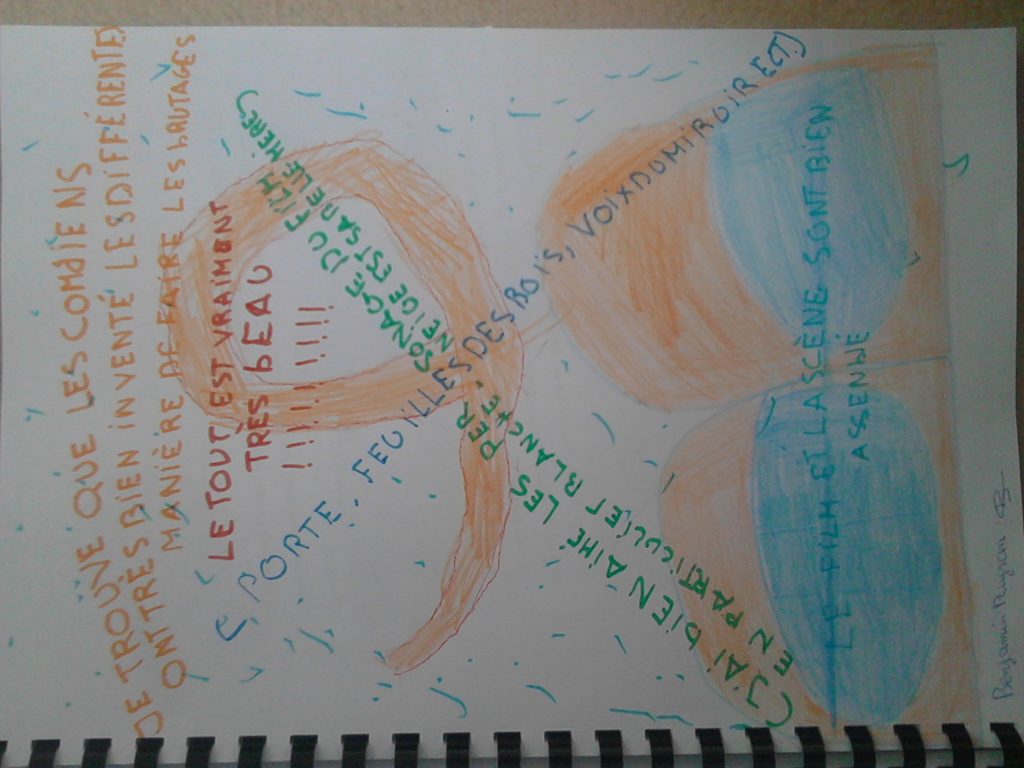 JE TROUNE QUE LES COMDIENS
ONT TRÈS BIEN INVENTÉ LES DIFFÉRENTES
MANIÈRE DE FAIRE LES bRUTAGES
LE TOUT, EST VRAIMENT
TRES bEAU
!!!!!!!!!
( PORTE, FEUILLES DES BOIS, VOIX DU MIROIR ECT)
(J'AI bIEN AIMÉ LES PERSONAGE DU FILM
EN PARTICULIER BLANCHE NEIGE EST SA DELLE MÈRES)
LE FILM ET LA SCÈNE SONT BIEN
ASSENNÉ
Benjamin